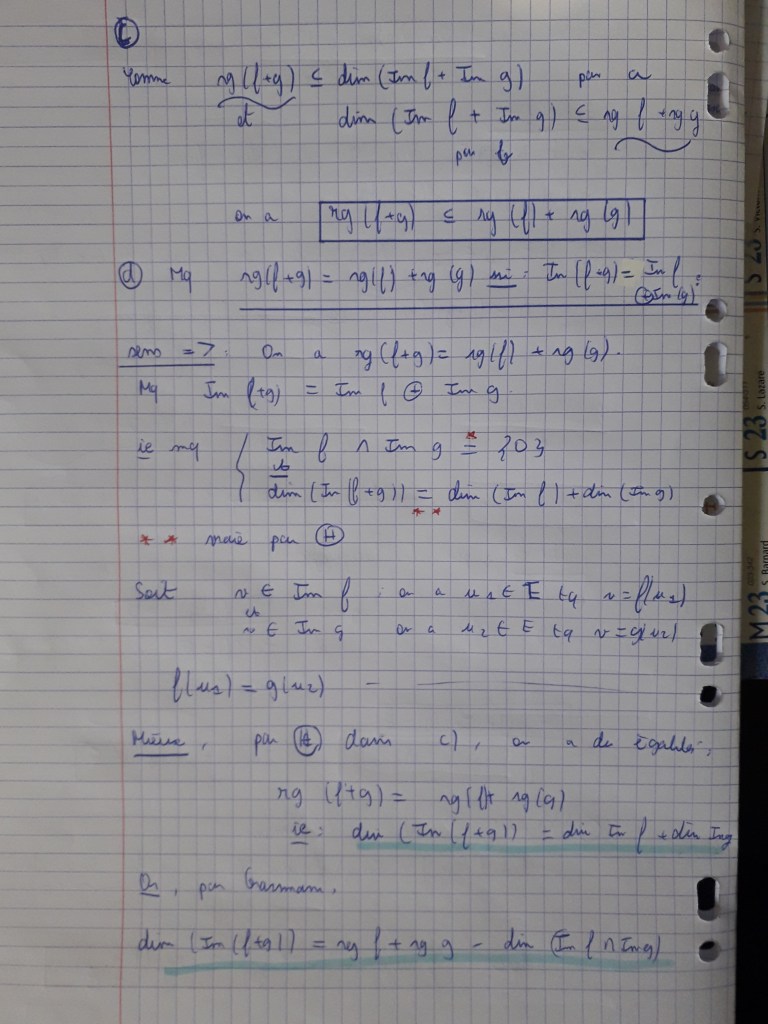 C
Comme rg (f+g) ≤ dim (Im f + Im g) par a
et dim (Im f + Im g) ≤ rg f + rg g
par b
on a rg (f+g) ≤ rg (f) + rg (g)
d Mq rg(f+g) = rg(f) + rg (g) ssi : Im (f+g) = Im f
⊕ Im (g).
sens => : On a rg (f+g) = rg(f) + rg (g).
Mq Im (f+g) = Im f ⊕ Im g.
ie mq { Im f ∩ Im g =* {0}
et
dim (Im (f+g)) = dim (Im f) + dim (Im g)
* *
* * mais par H
Soit v ∈ Im f : on a u1 ∈ E tq v = f(u1)
et
v ∈ Im g on a u2 ∈ E tq v = g(u2)
f(u1) = g(u2) —
Mieux, par H dans c), on a de égalités,
rg (f+g) = rg(f)+ rg(g)
ie : dim (Im (f+g)) = dim Im f + dim Im g
Or, par Grassmann,
dim (Im (f+g)) = rg f + rg g - dim (Im f ∩ Im g)
S 23
S. Lazare
M 23
S. Barnard